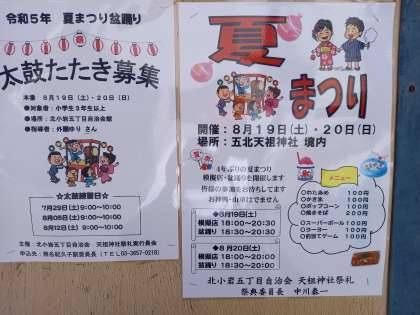 令和5年 夏まつり盆踊り
太鼓たたき募集
本番 8月19日(土)・20日(日)
●対象者:小学生3年生以上
●場所:北小岩五丁目自治会館
●指導者:外園ゆり さん
☆太鼓練習日☆
7月29日(土)9:00~10:00
8月05日(土)9:00~10:00
8月12日(土)9:00~10:00
主催:北小岩五丁目自治会 天祖神社祭礼実行委員会
(TEL 03-3657-0218)
夏
まつり
開催:8月19日(土)・20日(日)
場所:五北天祖神社 境内
4年ぶりの夏まつり
模擬店・盆踊りを開催します
皆様の参加をお待ちしてます
お神輿・山車はでません
◆8月19日(土)
模擬店 18:00~20:30
盆踊り 18:30~20:30
◆8月20日(日)
模擬店 18:00~20:00
盆踊り 18:30~20:00
メニュー
○わたあめ 100円
○かき氷 100円
○ポップコーン 100円
○焼きそば 200円
○スーパーボール 100円
○ヨーヨー 100円
○射的てゲーム 100円
北小岩五丁目自治会 天祖神社祭礼
祭典委員長 中川泰一